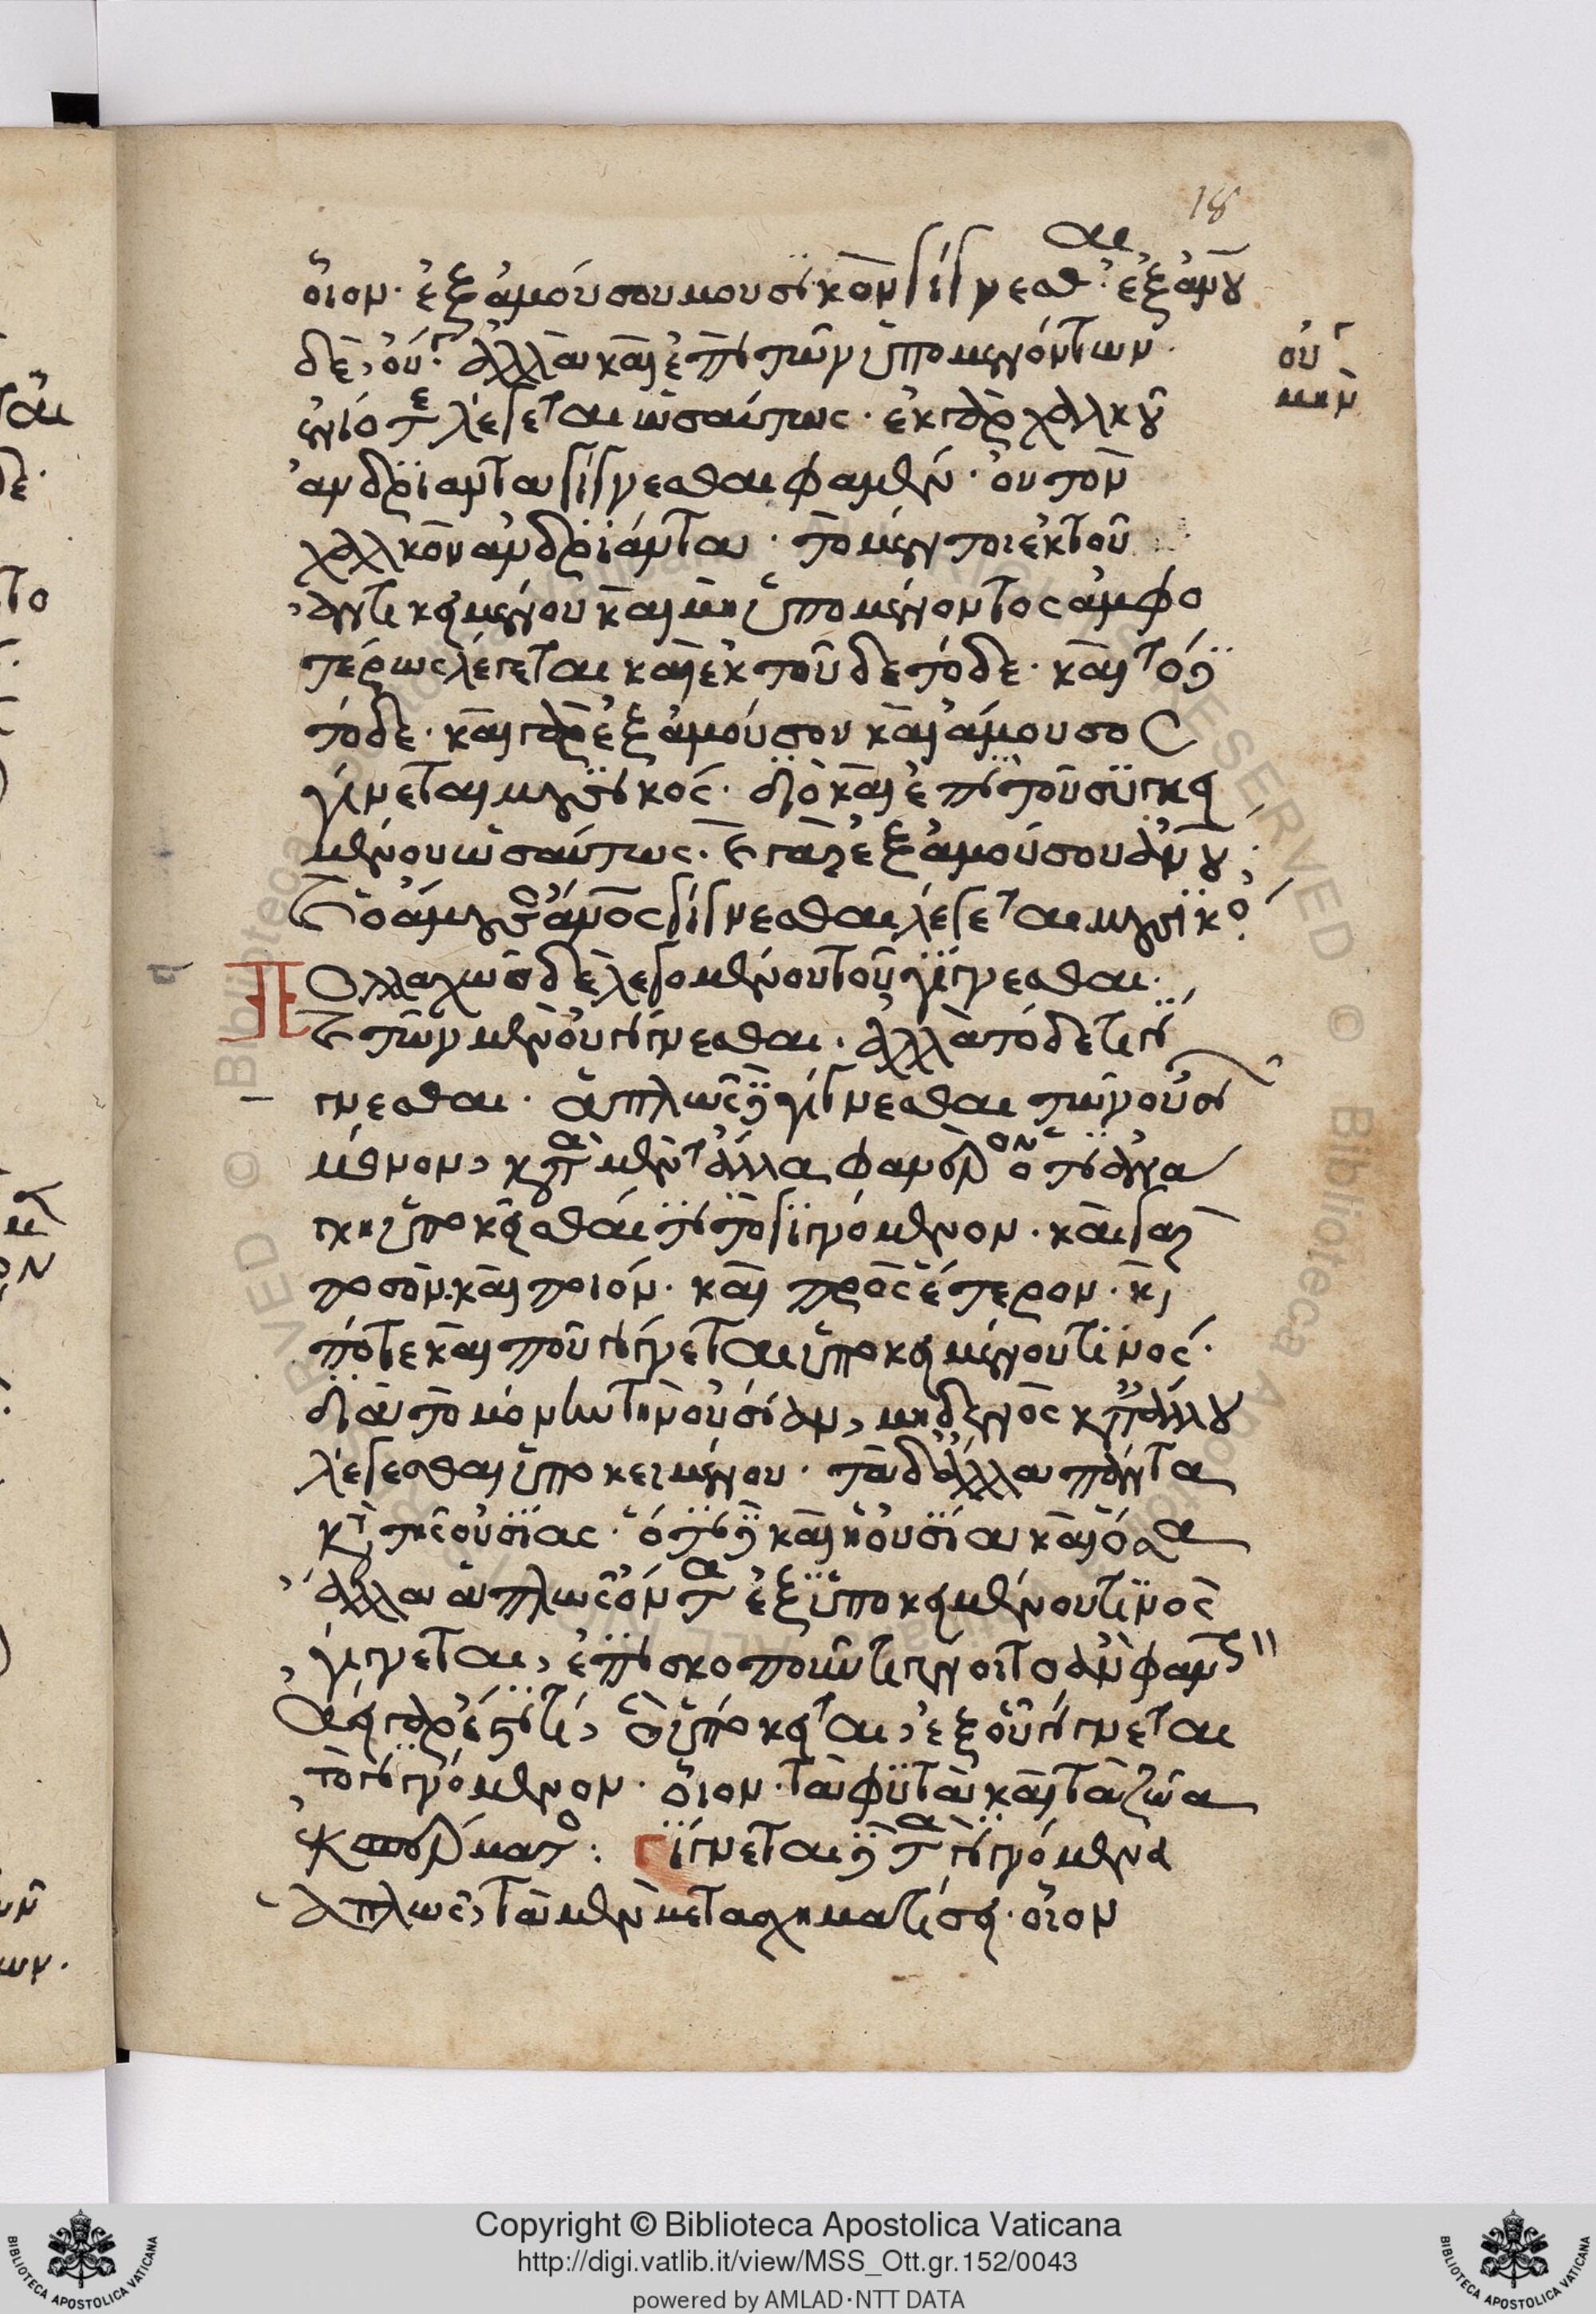 18
οἷον· ἐξ ἀμούσου μουσικὸν γίγνεσθαι· ἐξ ἀνου
δὲ, οὔ· ἀλλὰ καὶ ἐπὶ τῶν ὑπομενόντων
οὐ
μὴν
ἐνίοτε λέγεται ὡσαύτως· ἐκ γὰρ χαλκοῦ
ἀνδριάντα γίγνεσθαι φαμὲν· οὐ τὸν
χαλκὸν ἀνδριάντα· τὸ μέντοι ἐκ τοῦ
ἀντικειμένου καὶ μὴ ὑπομένοντος ἀμφο
τέρως λέγεται καὶ ἐκ τοῦδε τόδε· καὶ τόδε
τόδε· καὶ γὰρ ἐξ ἀμούσου καὶ ἀμουσος
γίνεται μουσικός· διὸ καὶ ἐπὶ τοῦ συγκει
μένου ὡσαύτως· καὶ γὰρ ἐξ ἀμούσου ἀνου,
καὶ ὁ ἄμουσος ἄνος γίγνεσθαι λέγεται μουσικός·
Πολλαχῶς δὲ λεγομένου τοῦ γίγνεσθαι·
καὶ τῶν μὲν οὐ γίγνεσθαι· ἀλλὰ τόδε τι γί
γνεσθαι· ἁπλῶς δὲ γίγνεσθαι τῶν οὐσιῶν
μόνον, κατὰ μὲν τἄλλα φανερὸν ὅτι ἀνάγ
κη ὑποκεῖσθαί τι τὸ γιγνόμενον· καὶ γὰρ
ποσὸν καὶ ποιόν· καὶ πρὸς ἕτερον· καὶ
πότε καὶ ποῦ γίγνεται ὑποκειμένου τινός·
διὰ τὸ μόνην τὴν οὐσίαν, μηδενὸς κατ' ἄλλου
λέγεσθαι ὑποκειμένου· τὰ δ' ἄλλα πάντα
κατὰ τῆς οὐσίας· ὅτι δὲ καὶ ἡ οὐσία καὶ ὅσα
ἄλλα ἁπλῶς ὄντα ἐξ ὑποκειμένου τινὸς
γίγνεται, ἐπισκοποῦντι γένοιτο ἂν φανερόν
ἀεὶ γὰρ ἔστι τι, ὃ ὑπόκειται, ἐξ οὗ γίγνεται
τὸ γιγνόμενον· οἷον· τὰ φυτὰ καὶ τὰ ζῶα
ἐκ σπέρματος: γίγνεται δὲ τὰ γιγνόμενα
ἁπλῶς, τὰ μὲν μετασχηματίσει· οἷον
Copyright © Biblioteca Apostolica Vaticana
http://digi.vatlib.it/view/MSS_Ott.gr.152/0043
powered by AMLAD·NTT DATA
BIBLIOTECA APOSTOLICA VATICANA
BIBLIOTECA APOSTOLICA VATICANA